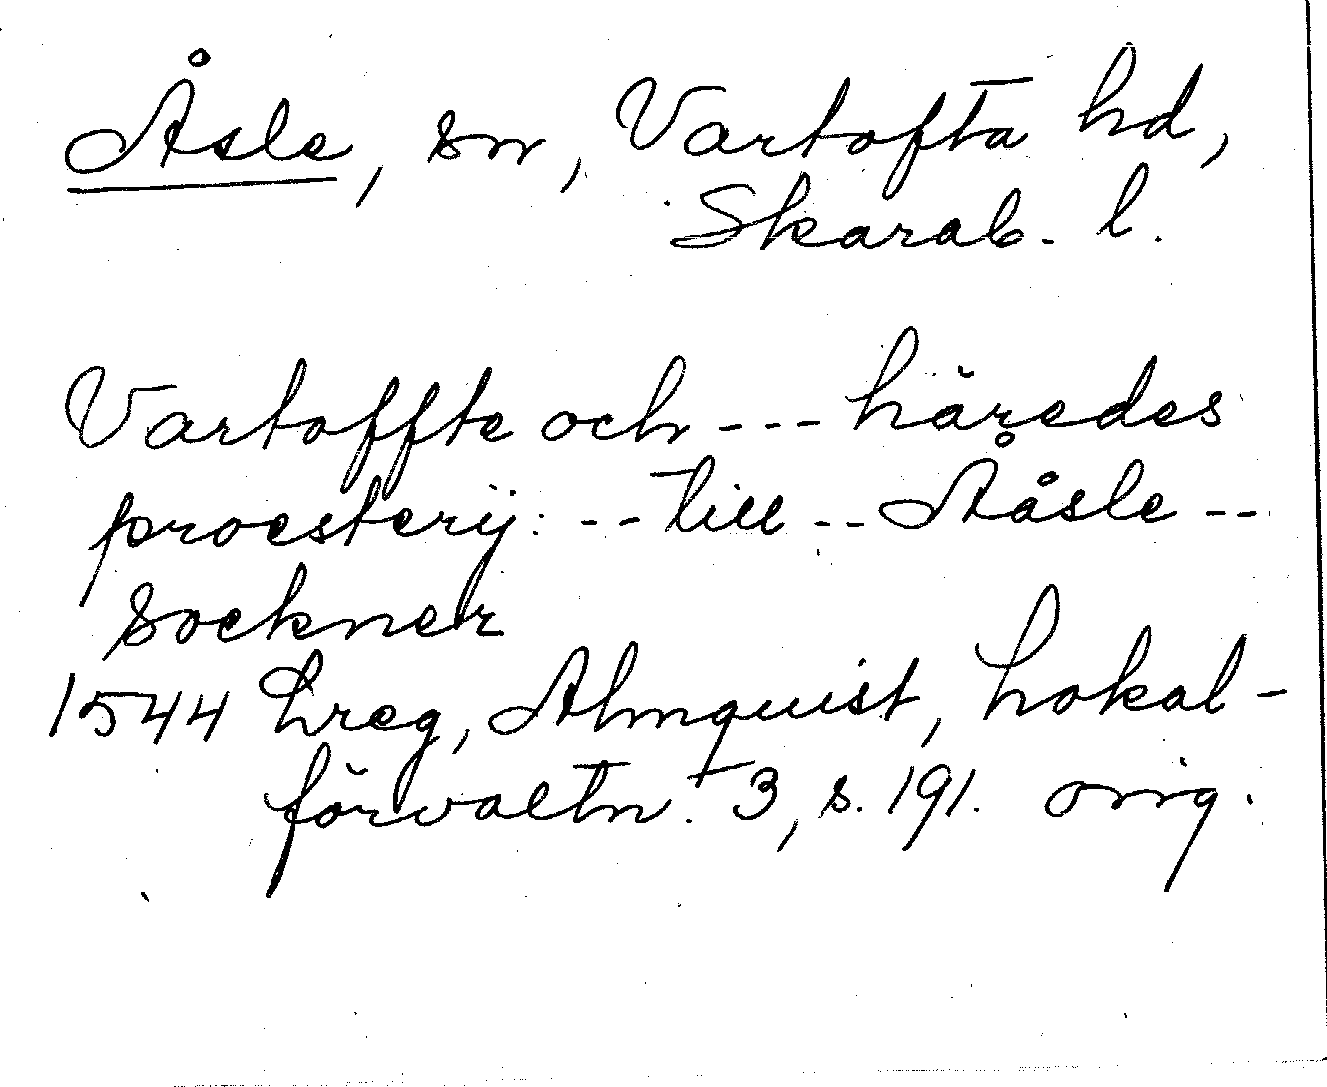 Åsle, sn, Vartofta hd,
Skarab. l.
Vartoffte och --- häredes
proesterij: -- till -- Ååsle --
Sockner
1544 Lreg, Almquist, Lokal-
förvaltn. 3, s. 191. orig.